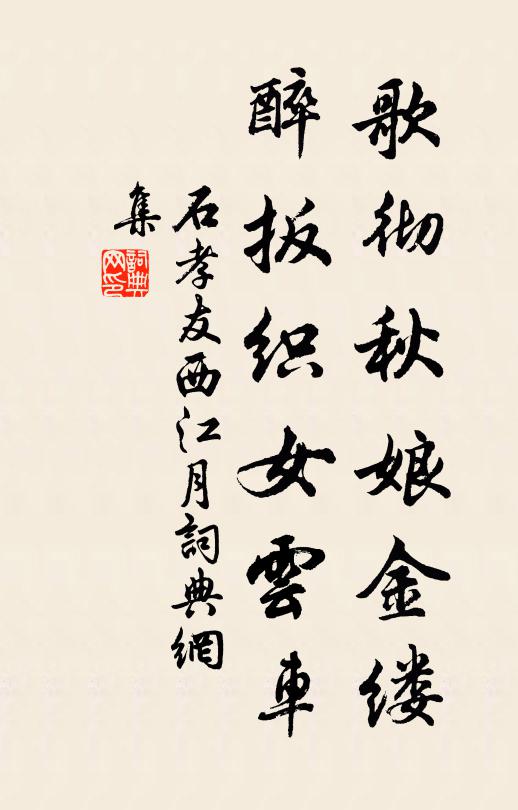 歌彻秋娘金缕
醉扳织女雲車
石孝友西江月詞典網
集
詞典網印